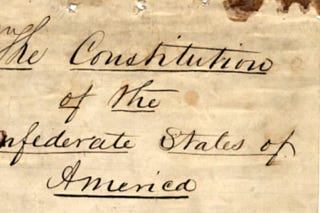 The Constitution
of the
nfederate States of
America